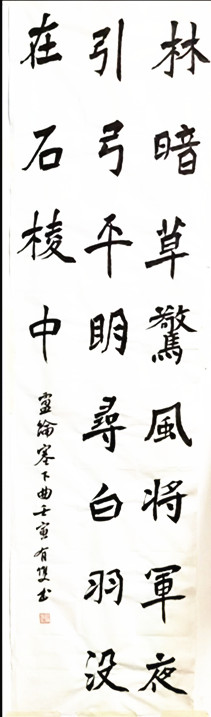 林暗草驚風将軍夜
引弓平明尋白羽没
在石棱中
盧綸塞下曲壬寅有隻书